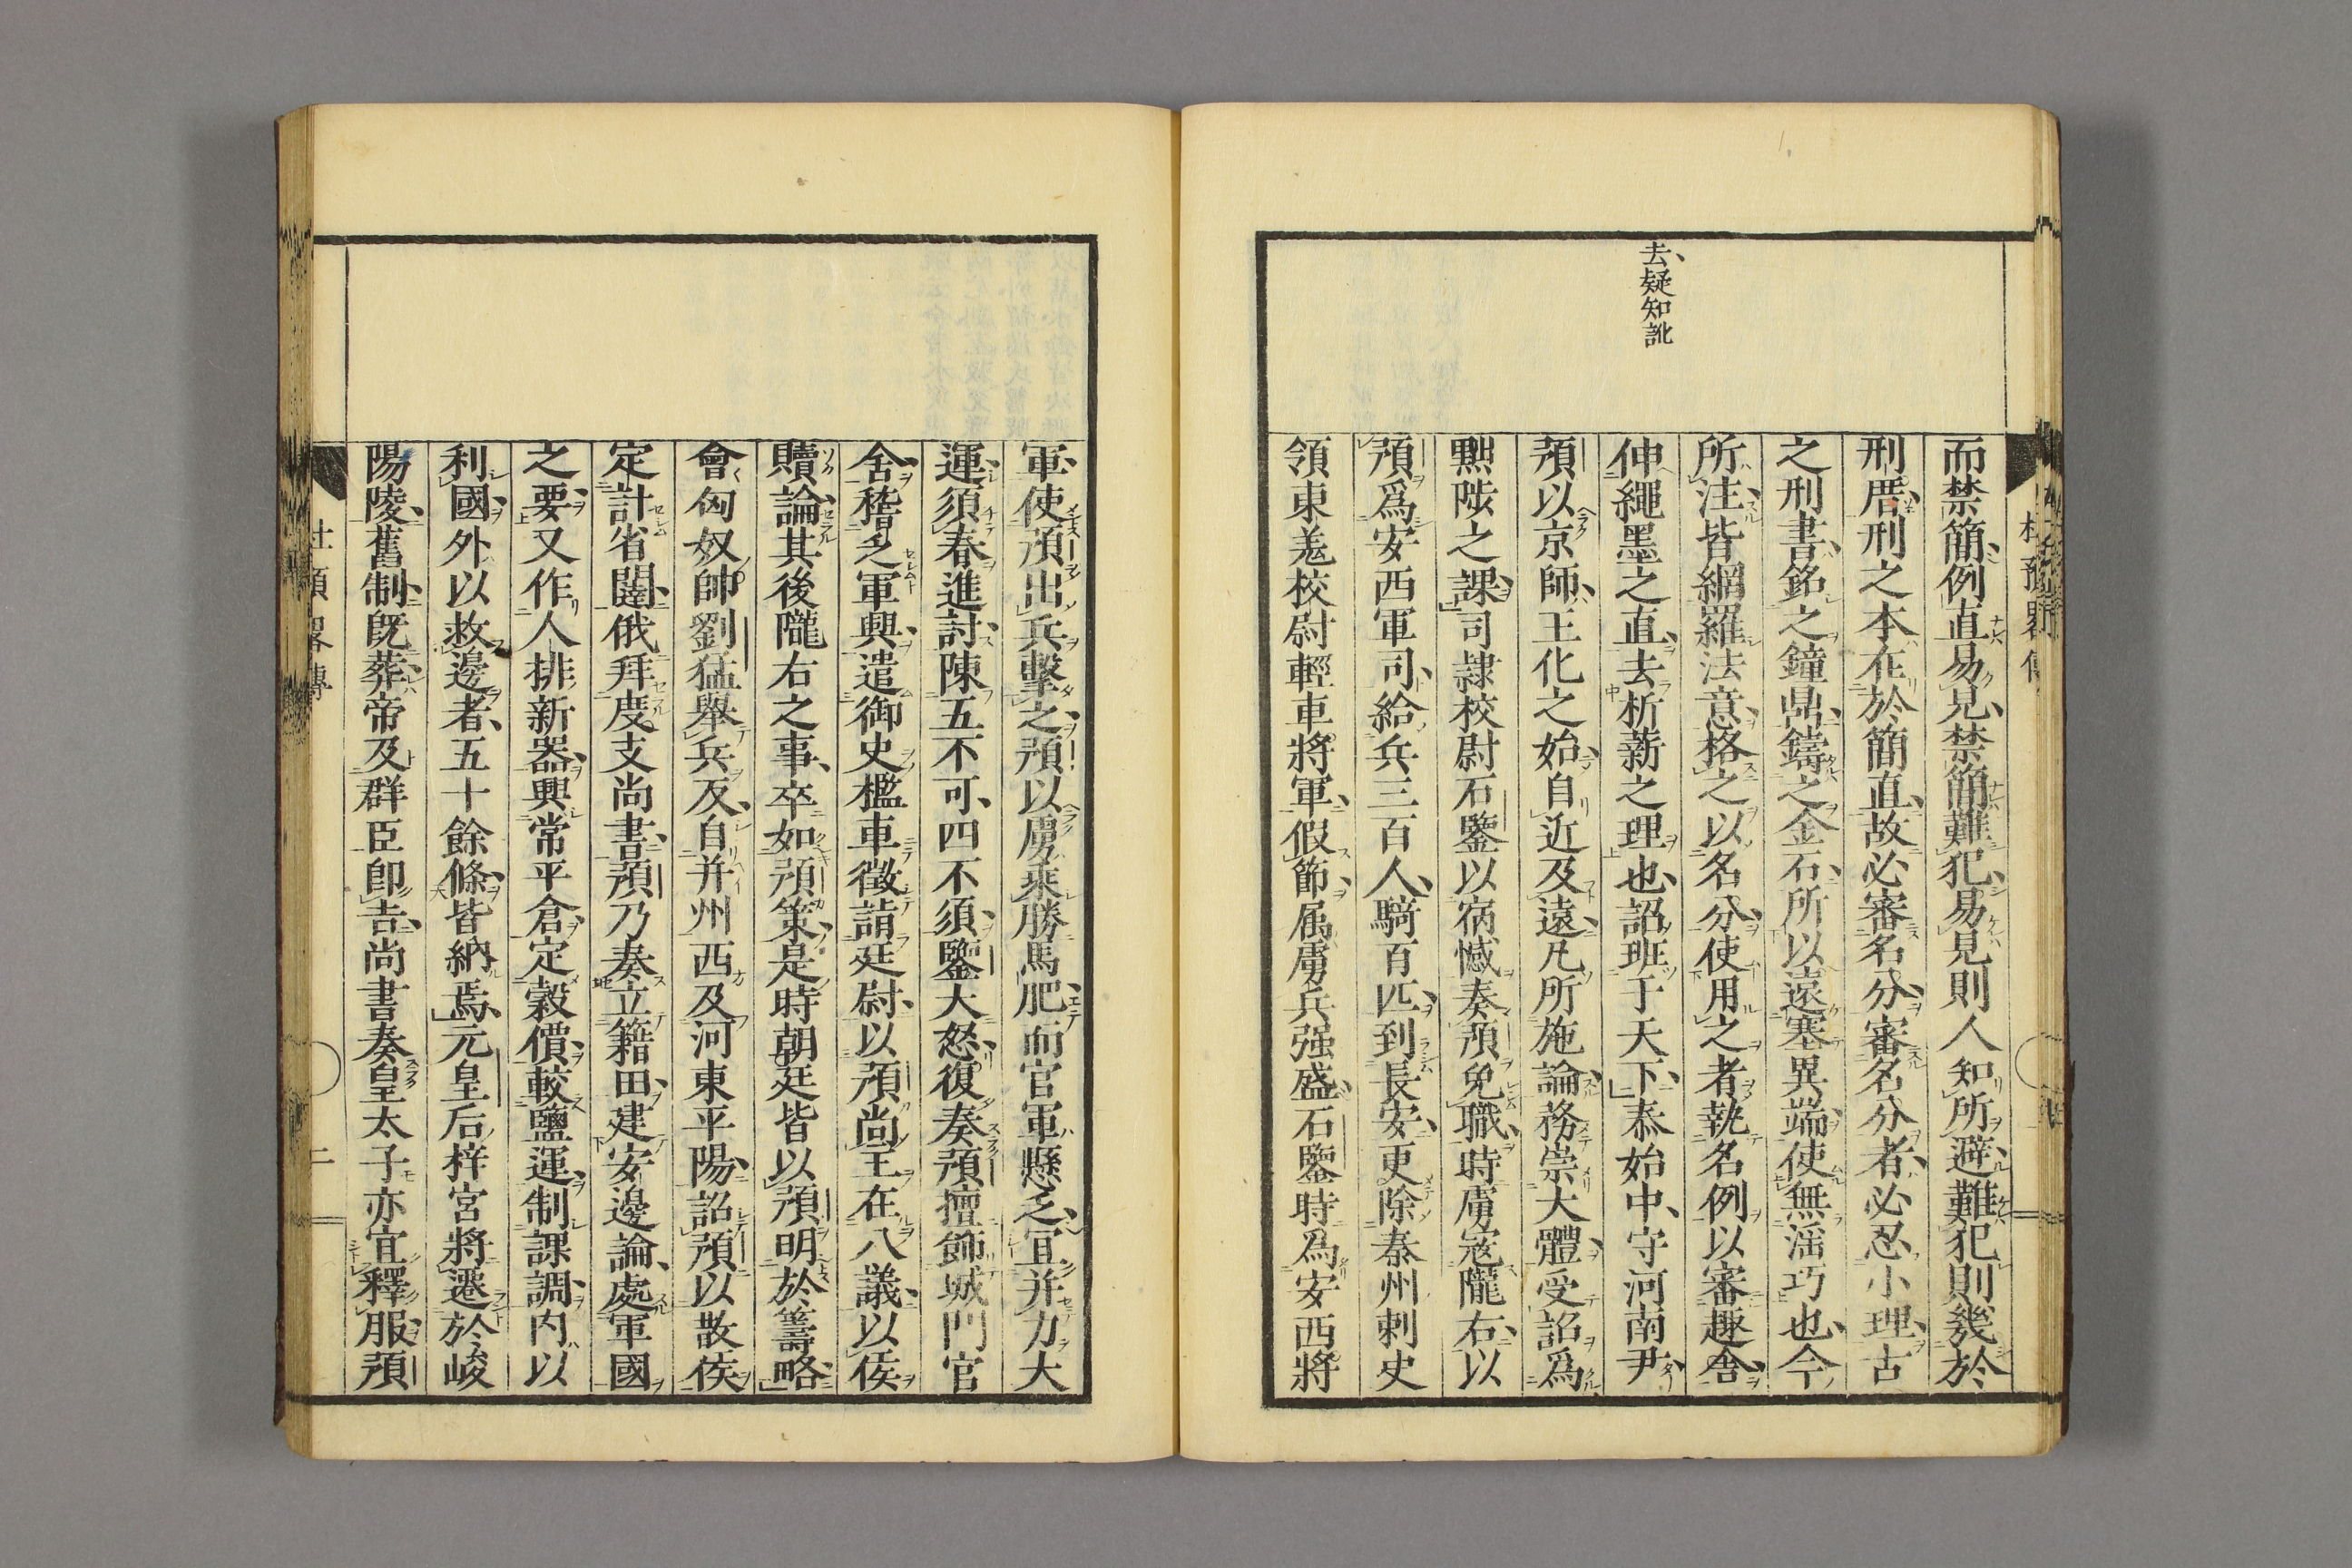 去疑知訛
而禁簡例直易見禁簡難犯易見則人知所避難犯則幾於
刑厝刑之本在於簡直故必審名分審名分者必忍小理古
之刑書銘之鐘鼎鑄之金石所以遠塞異端使無淫巧也今
所注皆網羅法意格之以名分使用之者執名例以審趣舍
伸繩墨之直去析薪之理也詔班于天下泰始中守河南尹
預以京師王化之始自近及遠凡所施論務崇大體受詔爲
黜陟之課司隷校尉石鑒以宿憾奏預免職時虜寇隴右以
預爲安西軍司給兵三百人騎百匹到長安更除秦州刺史
領東羌校尉輕車將軍假節属虜兵强盛石鑒時爲安西將
杜預畧傳
軍使預出兵擊之預以虜乗勝馬肥而官軍懸乏宜并力大
運須春進討陳五不可四不須鑒大怒復奏預擅飾城門官
舍稽乏軍興遣御史檻車徵詣廷尉以預尚主在八議以侯
贖論其後隴右之事卒如預策是時朝廷皆以預明於籌略
會匈奴帥劉猛舉兵反自并州西及河東平陽詔預以散侯
定計省闥俄拜度支尚書預乃奏立籍田建安邊論處軍國
之要又作人排新器興常平倉定穀價較鹽運制課調内以
利國外以救邊者五十餘條皆納焉元皇后梓宮將遷於峻
陽陵舊制既葬帝及群臣卽吉尚書奏皇太子亦宜釋服預
杜預畧傳
二